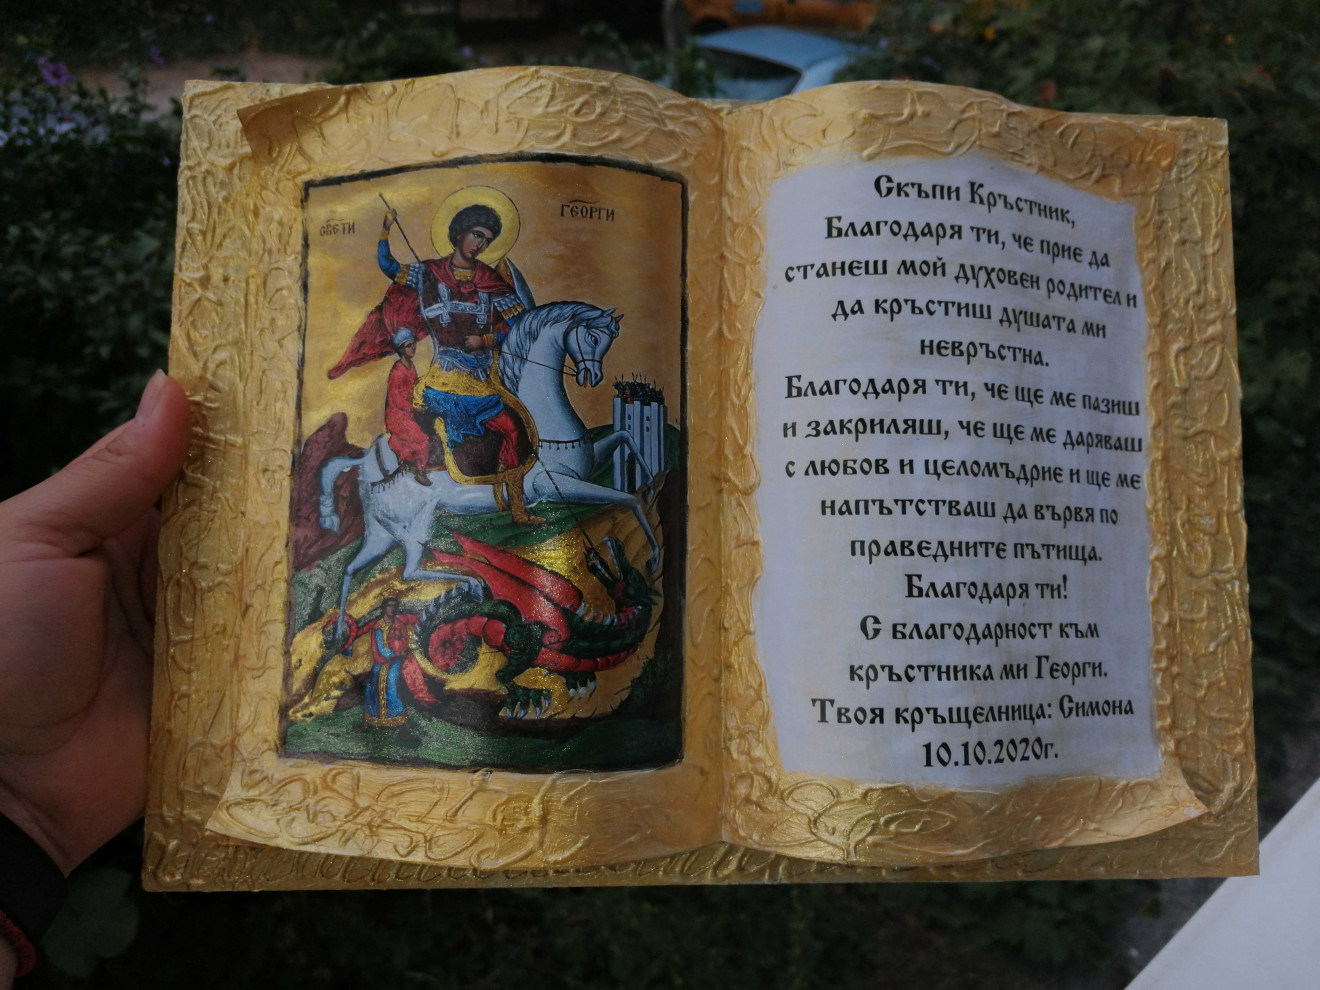 СВЕТИ
ГЕОРГИ
Скъпи Кръстник,
Благодаря ти, че прие да
станеш мой духовен родител и
да кръстиш душата ми
невръстна.
Благодаря ти, че ще ме пазиш
и закриляш, че ще ме даряваш
с любов и целомъдрие и ще ме
напътстваш да вървя по
праведните пътища.
Благодаря ти!
С благодарност към
кръстника ми Георги.
Твоя кръщелница: Симона
10.10.2020г.